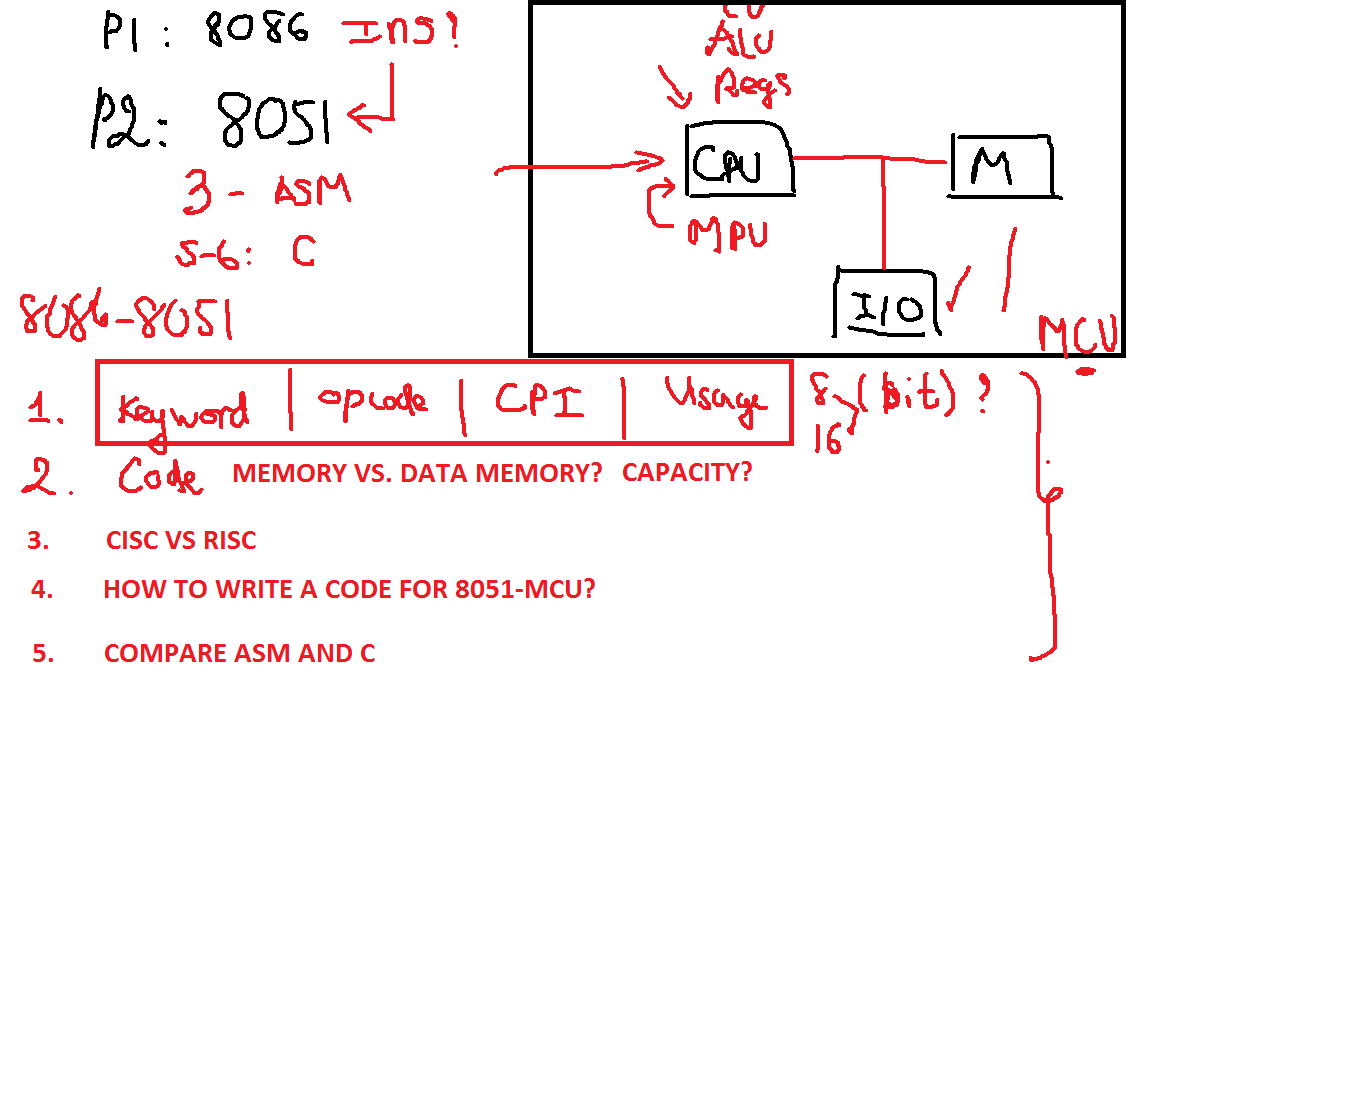 P1: 8086 Ins?
P2: 8051
3 - ASM
5-6: C
8086-8051
CU
ALU
Regs
CPU
M
MPU
I/O
MCU
1. Keyword | opcode | CPI | Usage 8 (bit) ?
16
2. Code MEMORY VS. DATA MEMORY? CAPACITY?
3. CISC VS RISC
4. HOW TO WRITE A CODE FOR 8051-MCU?
5. COMPARE ASM AND C